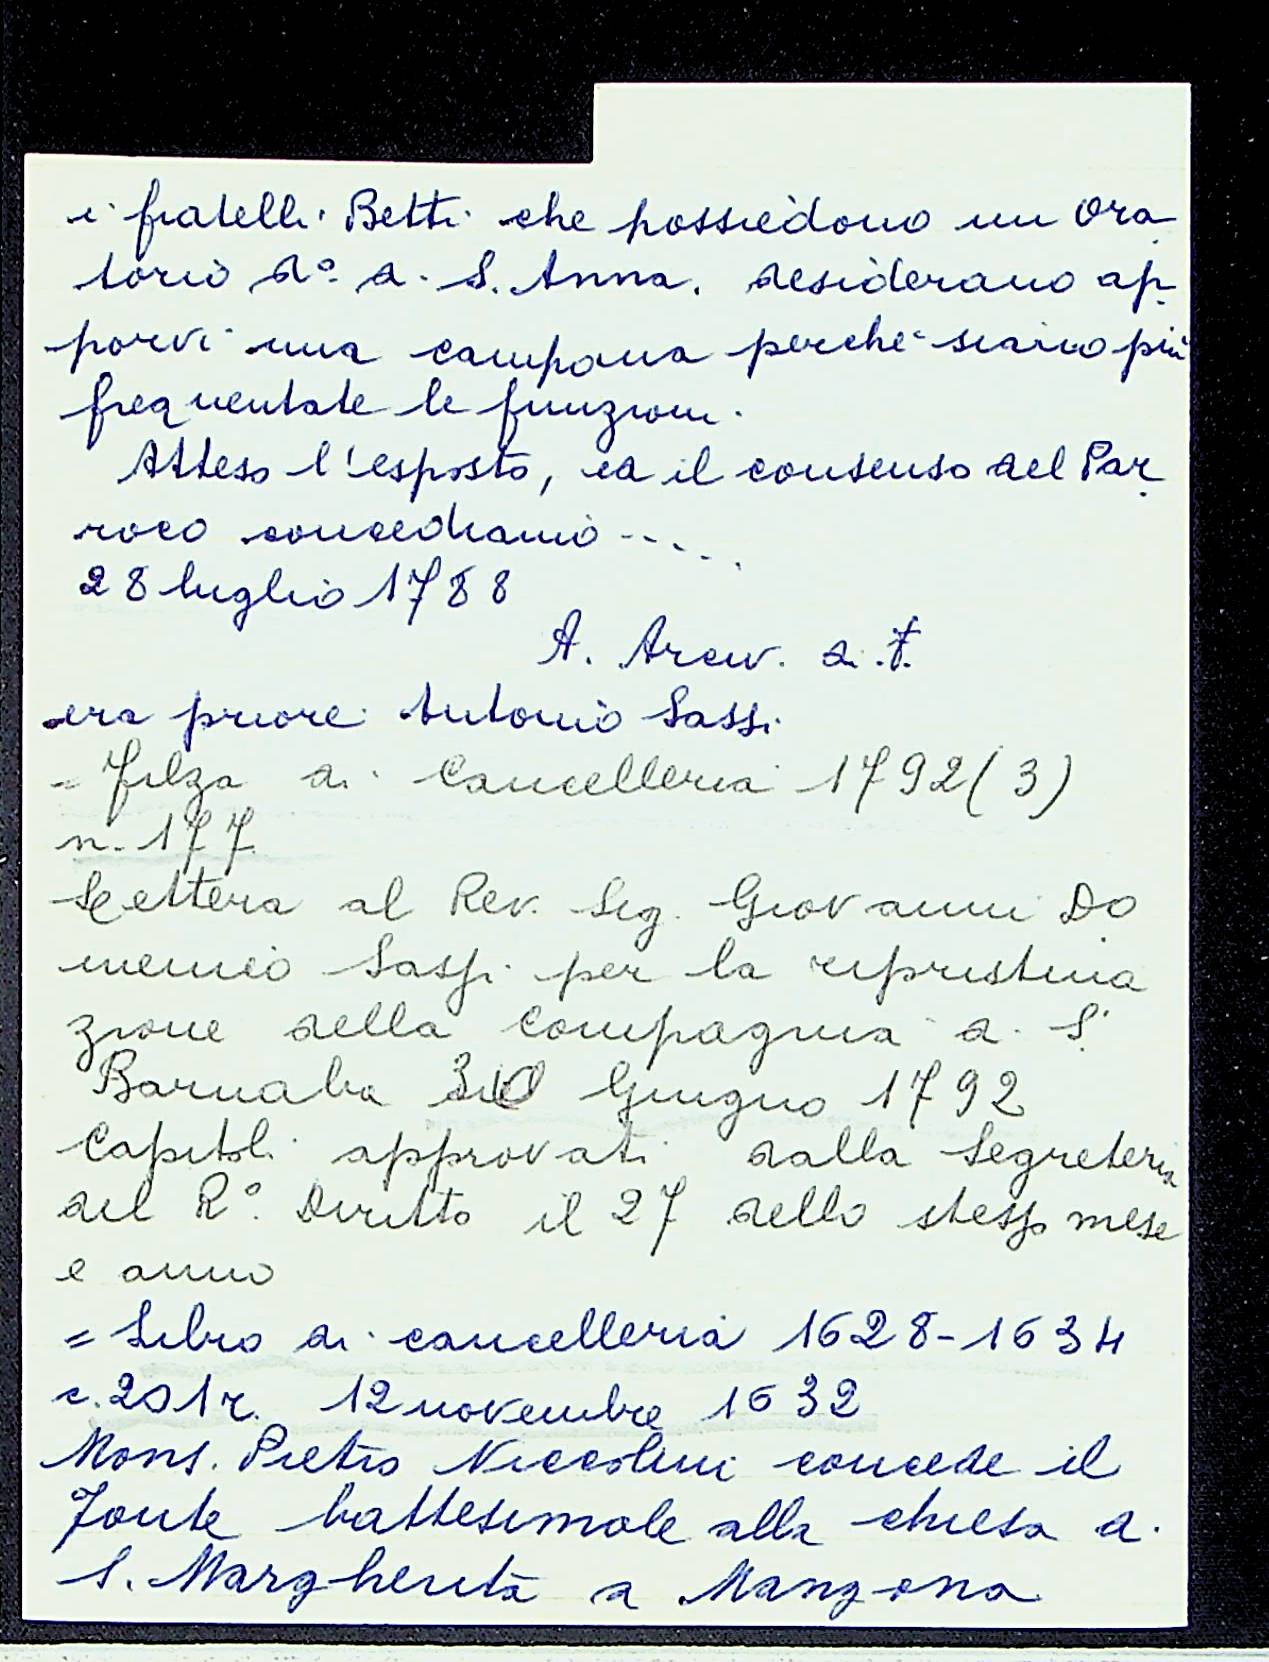 i fratelli Betti che possiedono un Ora
torio d.° d. S. Anna. desiderano ap-
porvi una campana perchè siano più
frequentate le funzioni.
Atteso l'esposto, ed il consenso del Par
roco concediamo ....
28 luglio 1788
A. Arciv. di F.
era priore Antonio Sassi
= Filza di Cancelleria 1792 (3)
n. 177
Lettera al Rev. Sig. Giovanni Do
menico Sassi per la ripristina
zione della Compagnia d. S.
Barnaba Giugno 1792
Capitoli approvati dalla Segreteria
del R.° Diritto il 27 dello stesso mese
e anno
= Libro di cancelleria 1628-1634
c. 201r. 12 novembre 1632
Mons. Pietro Niccolini concede il
Fonte battesimale alla chiesa d.
S. Margherita a Mangona